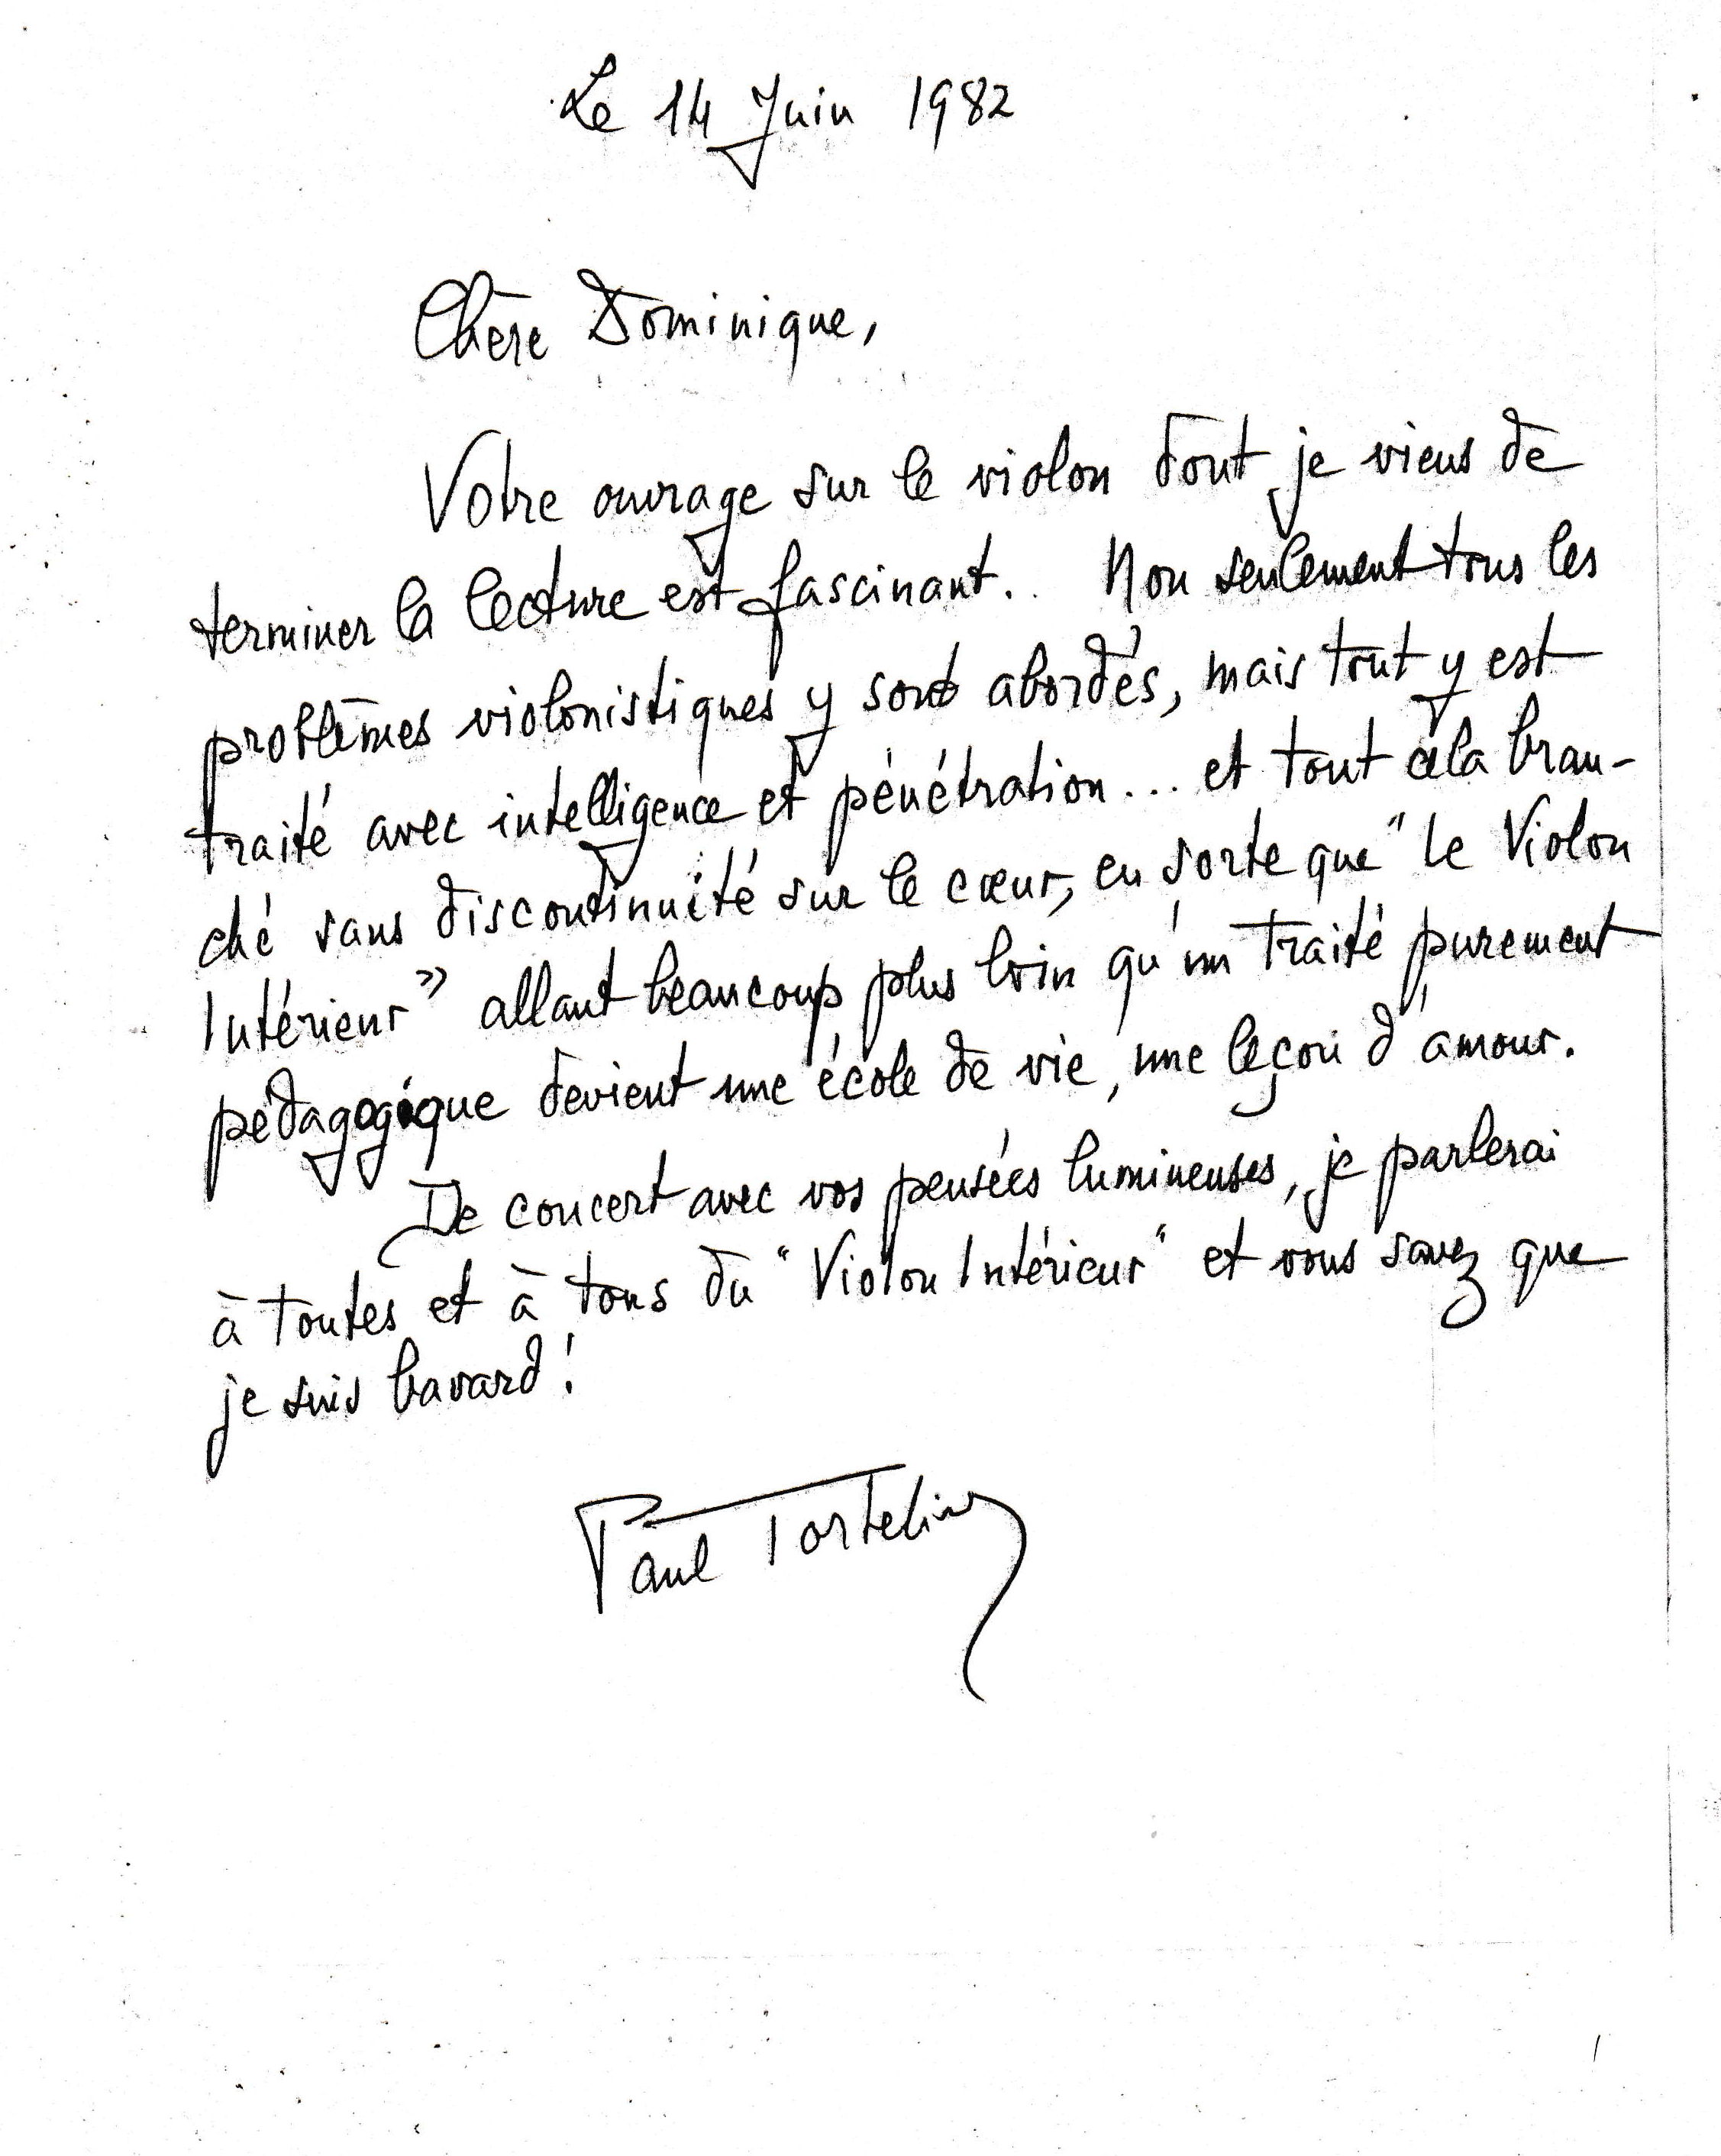 Le 14 Juin 1982
Chère Dominique,
Votre ouvrage sur le violon dont je viens de
terminer la lecture est fascinant. Non seulement tous les
problèmes violonistiques y sont abordés, mais tout y est
traité avec intelligence et pénétration... et tout cela bran-
ché sans discontinuité sur le cœur, en sorte que "Le Violon
Intérieur" allant beaucoup plus loin qu'un traité purement
pédagogique devient une école de vie, une leçon d'amour.
De concert avec vos pensées lumineuses, je parlerai
à toutes et à tous du "Violon Intérieur" et vous savez que
je suis bavard!
Paul Tortelier